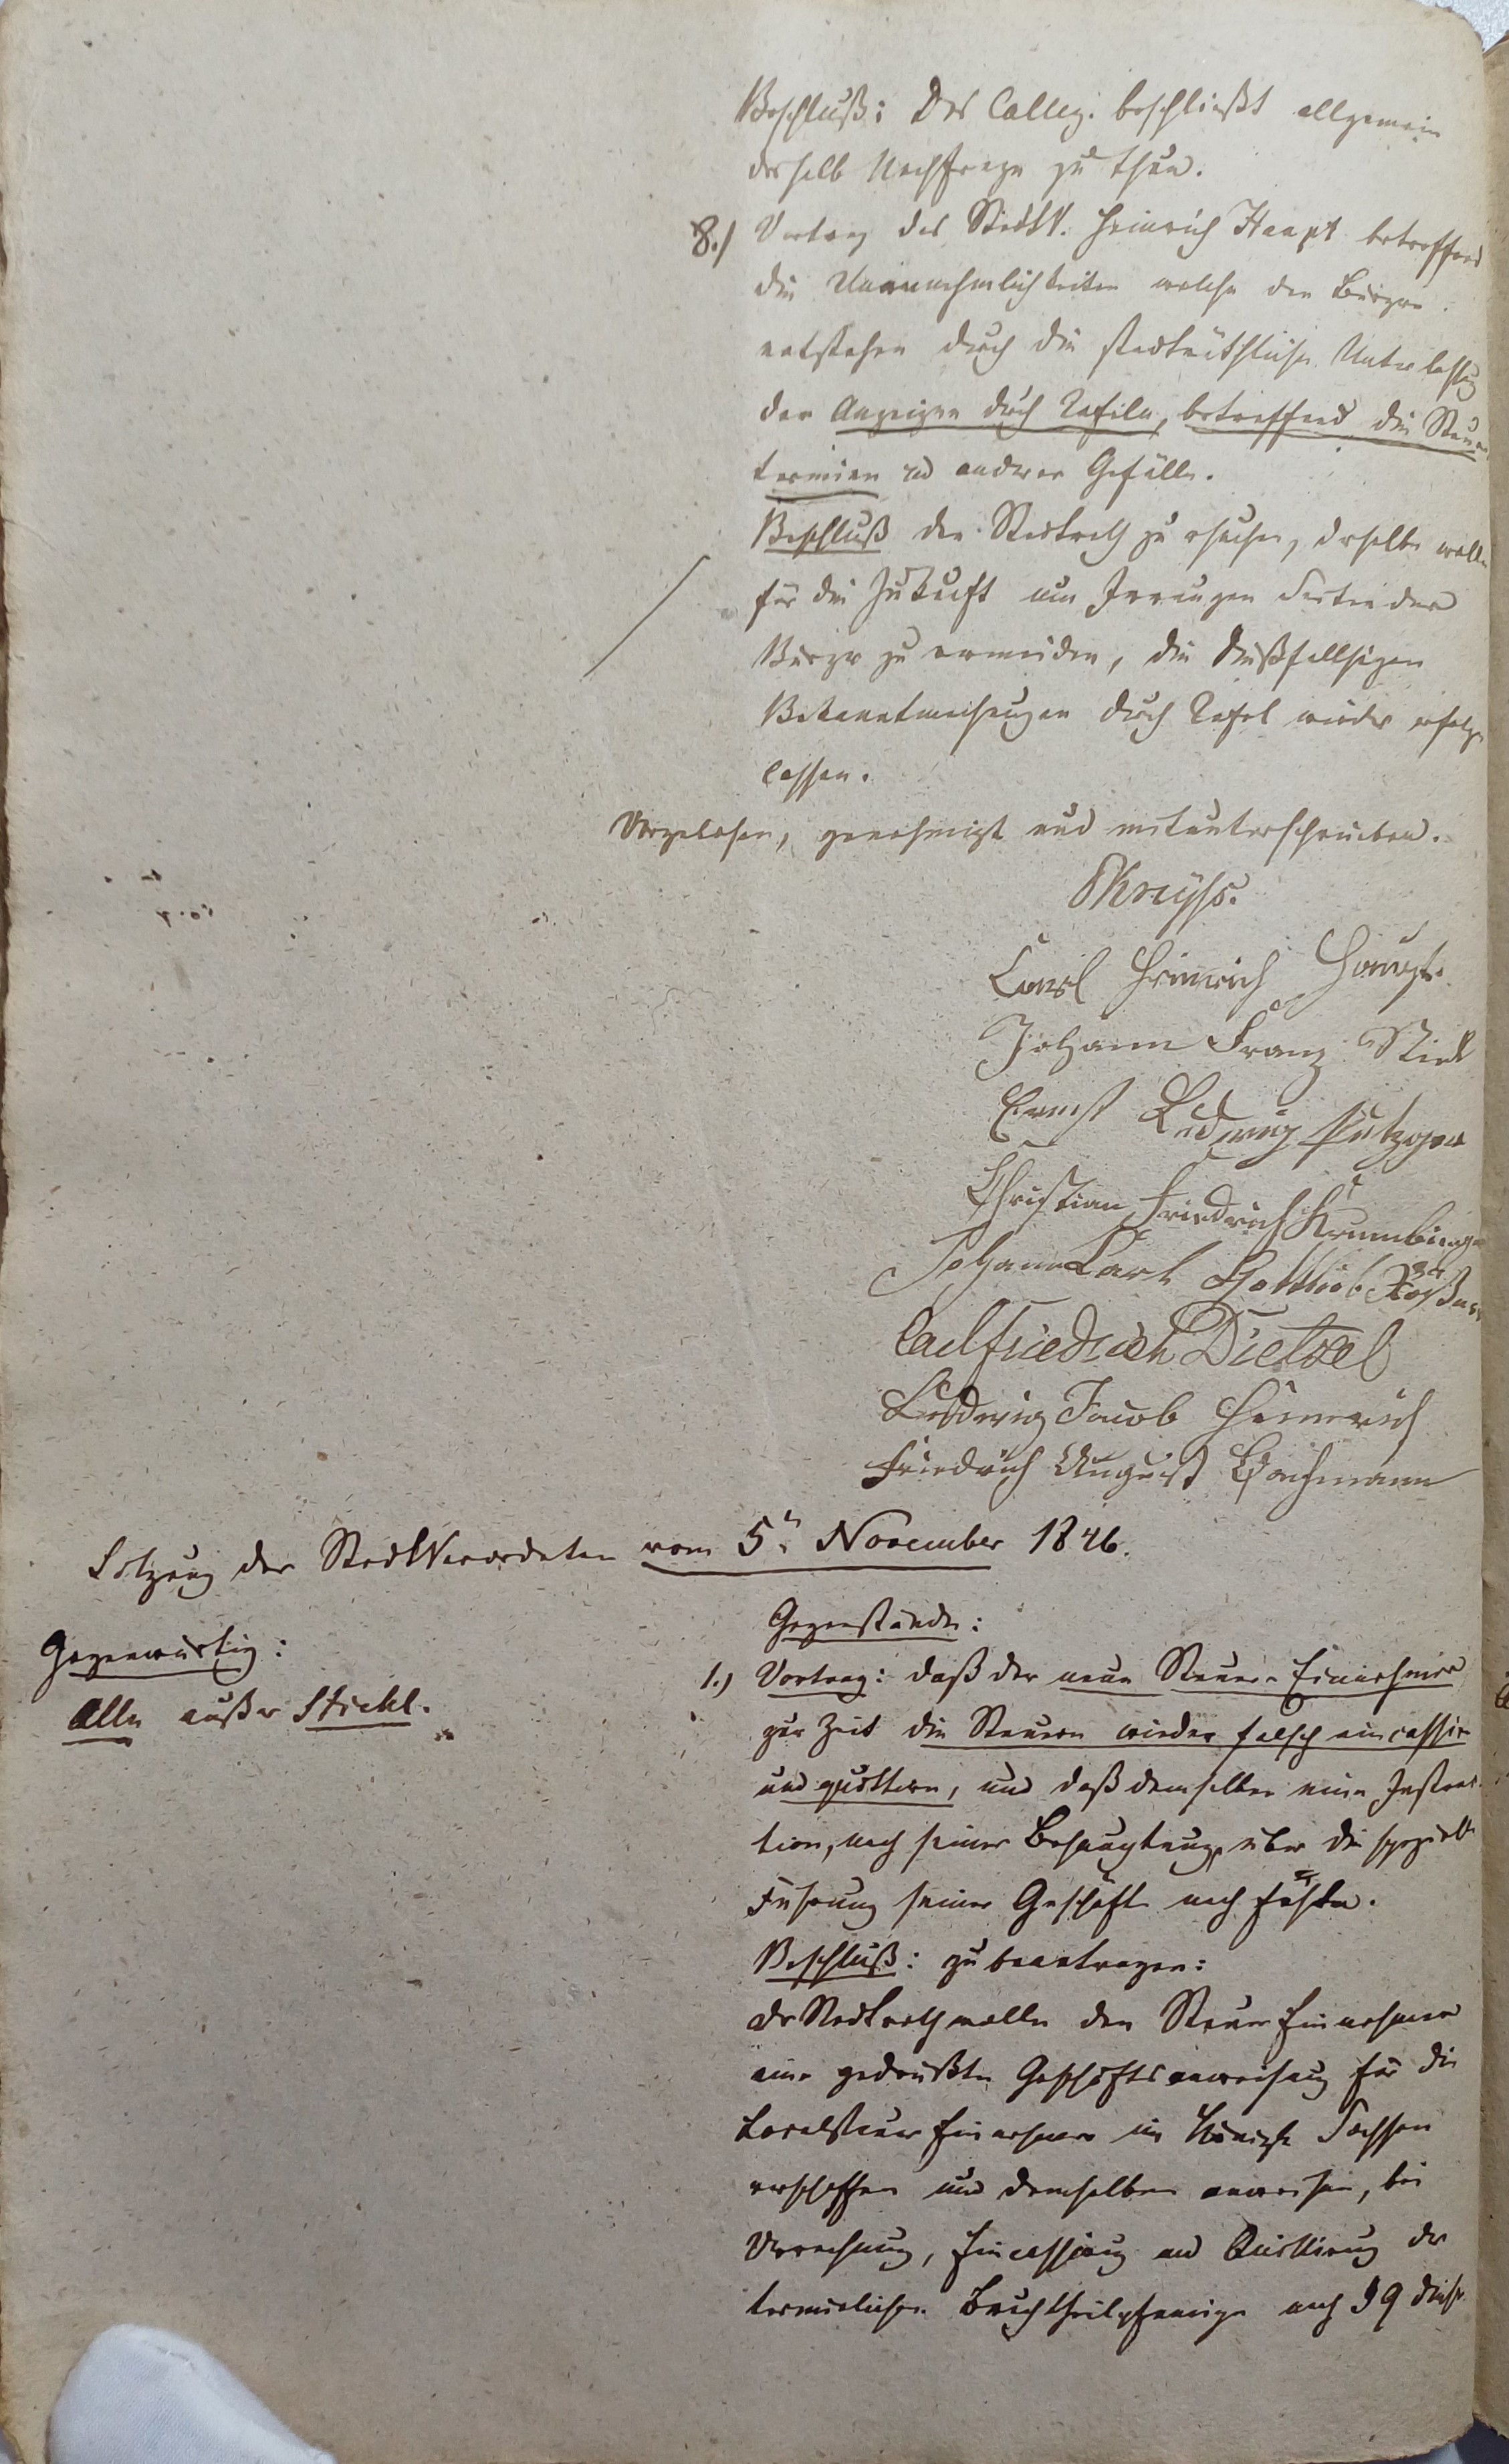 Beschluß: Das Colleg. beschließt allgemein
deshalb Nachfrage zu thun.
8.) Vortrag des StadtV. Heinrich Haupt betreffend
die Unannehmlichkeiten welche den Bürgern
entstehen durch die stadträthliche Unterlassung
der Anzeigen durch Tafeln, betreffend die Steuer
termine und anderer Gefälle.
Beschluß den Stadtrath zu ersuchen, derselbe wolle
für die Zukunft um Irrungen Seiten der
Bürger zu vermeiden, die dießfallsigen
Bekanntmachungen durch Tafel wieder erfolgen
lassen.
Vorgelesen, genehmigt und mitunterschrieben.
Carl Heinrich Haupt.
Johann Franz
Ernst Ludwig Putzger
Christian Friedrich Krumbiegel
Johann Carl Gottlieb
Carl Friedrich Dietzel
Ludwig Jacob Heinrich
Friedrich August Bachmann
Sitzung der StadtVerordneten vom 5n November 1846.
Gegenwärtig:
Alle außer Stiehl.
Gegenstände:
1.) Vortrag: daß der neue Steuer-Einnehmer
zur Zeit die Steuern wieder falsch eincassire
und quittire, und daß demselben eine Instruc-
tion, nach seiner Behauptung, über die spezielle
Führung seiner Geschäfte noch fehle.
Beschluß: zu beantragen:
der Stadtrath wolle dem Steuer Einnehmer
eine gedruckte Geschäftsanweisung für die
Localsteuer Einnehmer im Königr. Sachsen
verschaffen und demselben anweisen, bei
Verrechnung, Eincassirung und Quittirung der
terminlichen Bruchtheilpfennige nach § 9 dieser